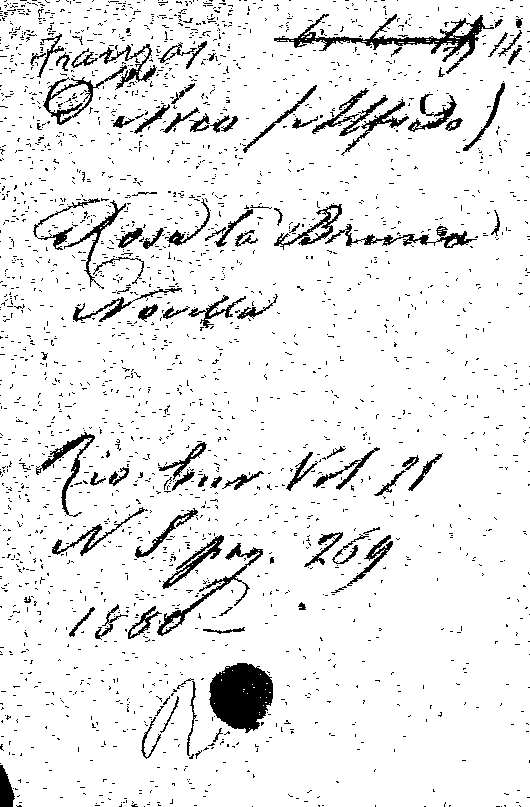 D'Arco (Alfredo)
Rosa la Bruna
Novella
Riv. Eur. Vol. 21
N S. pag. 269
1880
R